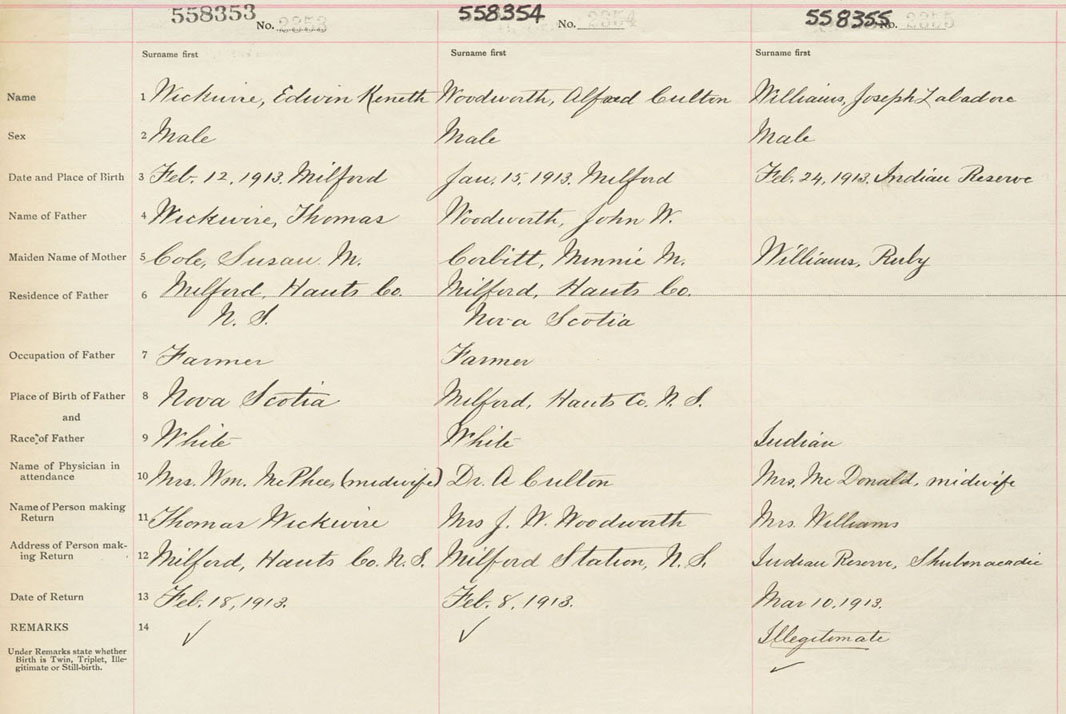 558353 No. 2353 558354 No. 2354 558355 No. 2355
Surname first Surname first Surname first
Name 1 Wickwire, Edwin Keneth Woodworth, Alfred Culton Williams, Joseph Labadore
Sex 2 Male Male Male
Date and Place of Birth 3 Feb. 12, 1913. Milford Jan. 15, 1913. Milford Feb. 24, 1913. Indian Reserve
Name of Father 4 Wickwire, Thomas Woodworth, John W.
Maiden Name of Mother 5 Cole, Susan M. Corbitt, Minnie M. Williams, Ruby
Residence of Father 6 Milford, Hants Co. Milford, Hants Co.
N. S. Nova Scotia
Occupation of Father 7 Farmer Farmer
Place of Birth of Father 8 Nova Scotia Milford, Hants Co. N. S.
and
Race of Father 9 White White Indian
Name of Physician in
attendance 10 Mrs. Wm. McPhee, (midwife) Dr. A Culton Mrs. Mc Donald, midwife
Name of Person making
Return 11 Thomas Wickwire Mrs J. W. Woodworth Mrs. Williams
Address of Person mak-
ing Return 12 Milford, Hants Co. N. S. Milford Station, N. S. Indian Reserve, Shubenacadie
Date of Return 13 Feb. 18, 1913. Feb. 8, 1913. Mar 10, 1913.
REMARKS 14 ✓ ✓ Illegitimate
Under Remarks state whether
Birth is Twin, Triplet, Ille-
gitimate or Still-birth. ✓